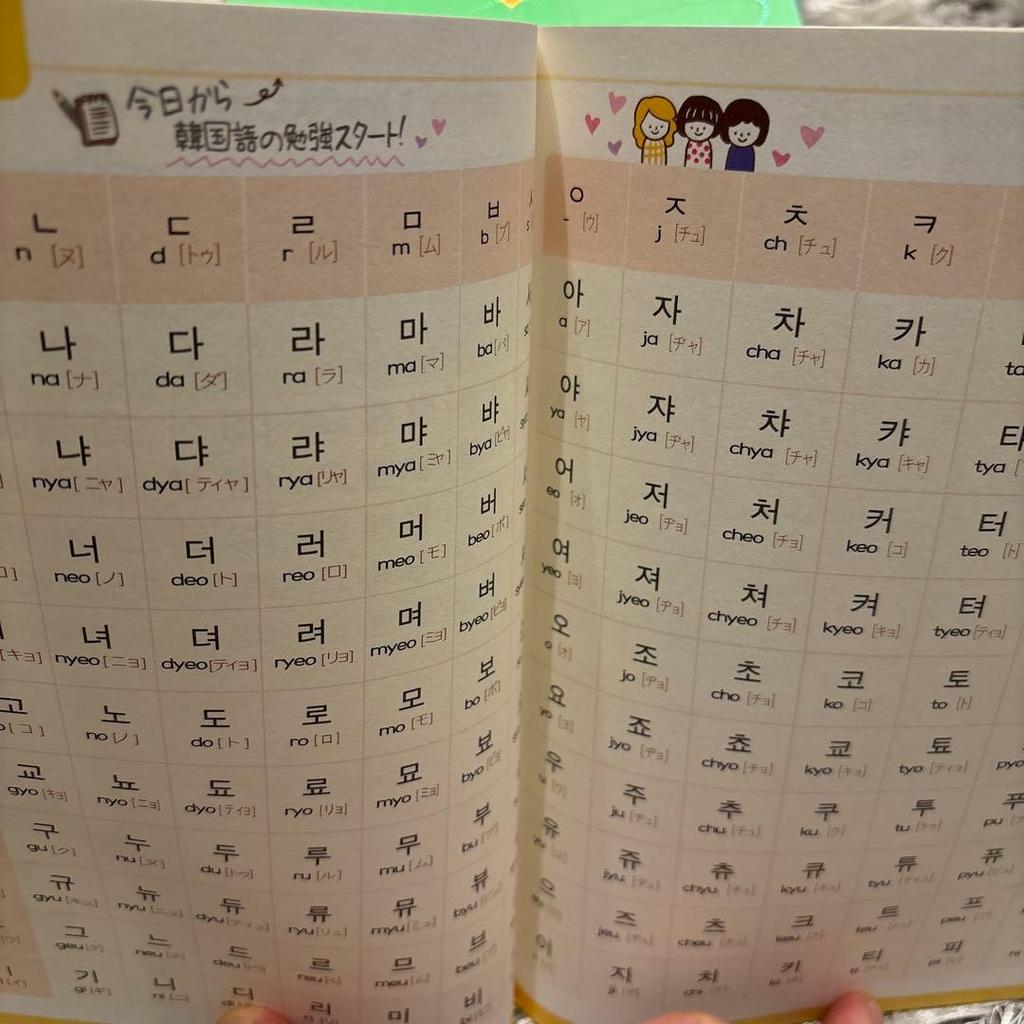 今日から
韓国語の勉強スタート!
ㄴ ㄷ ㄹ ㅁ ㅂ
n [ヌ] d [トゥ] r [ル] m [ム] b [ブ]
나 다 라 마 바
na [ナ] da [ダ] ra [ラ] ma [マ] ba [バ]
냐 댜 랴 먀 뱌
nya [ニャ] dya [ティャ] rya [リャ] mya [ミャ] bya [ビャ]
너 더 러 머 버
neo [ノ] deo [ト] reo [ロ] meo [モ] beo [ボ]
녀 뎌 려 며 벼
[キョ] nyeo [ニョ] dyeo [ティョ] ryeo [リョ] myeo [ミョ] byeo [ビョ]
고 노 도 로 모 보
[コ] no [ノ] do [ト] ro [ロ] mo [モ] bo [ボ]
교 뇨 됴 료 묘 뵤
gyo [キョ] nyo [ニョ] dyo [ティョ] ryo [リョ] myo [ミョ] byo [ビョ]
구 누 두 루 무 부
gu [ク] nu [ヌ] du [トゥ] ru [ル] mu [ム] bu [ブ]
규 뉴 듀 류 뮤 뷰
gyu [キュ] nyu [ニュ] dyu [ティュ] ryu [リュ] myu [ミュ] byu
그 느 드 르 므 브
geu [グ] neu [ヌ] deu reu [ル] meu [ム] beu
기 니 디 리 미 비
gi [ギ] ni [ニ]
ㅇ ㅈ ㅊ ㅋ
- [ウ] j [チュ] ch [チュ] k [ク]
아 자 차 카
a [ア] ja [ヂャ] cha [チャ] ka [カ]
야 쟈 챠 캬 탸
ya [ヤ] jya [ヂャ] chya [チャ] kya [キャ] tya
어 저 처 커 터
eo [オ] jeo [ヂョ] cheo [チョ] keo [コ] teo [ト]
여 져 쳐 켜 텨
yeo [ヨ] jyeo [ヂョ] chyeo [チョ] kyeo [キョ] tyeo [ティョ]
오 조 초 코 토
o [オ] jo [ヂョ] cho [チョ] ko [コ] to [ト]
요 죠 쵸 쿄 툐
yo [ヨ] jyo [ヂョ] chyo [チョ] kyo [キョ] tyo [ティョ] pyo
우 주 추 쿠 투 푸
ju [ヂュ] chu [チュ] ku [ク] tu [トゥ] pu
유 쥬 츄 큐 튜 퓨
jyu [ヂュ] chyu [チュ] kyu [キュ] tyu [ティュ] pyu [ピュ]
으 즈 츠 크 트 프
jeu [ヂュ] cheu [チュ] keu [ク] teu peu
이 지 치 키 티 피